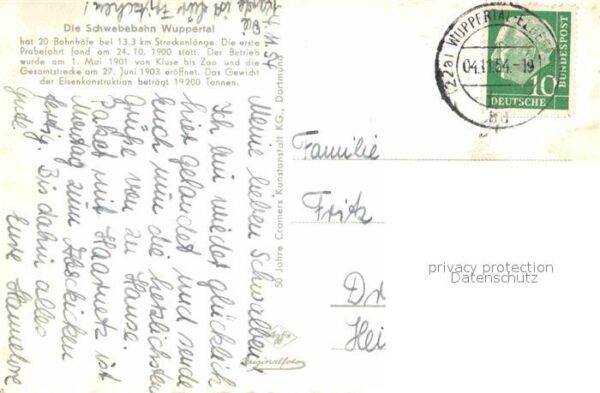 Die Schwebebahn Wuppertal
hat 20 Bahnhöfe bei 13,3 km Streckenlänge. Die erste
Probefahrt fand am 24. 10. 1900 statt. Der Betrieb
wurde am 1. Mai 1901 von Kluse bis Zoo und die
Gesamtstrecke am 27. Juni 1903 eröffnet. Das Gewicht
der Eisenkonstruktion beträgt 19200 Tonnen.
Meine lieben Schwalben!
Ich bin wieder glücklich
hier gelandet und sende
Euch nun die herzlichsten
Grüße von zu Hause.
Paket mit Haarnetz ist
Montag zum Abschicken
fertig. Bis dahin alles
Gute
Eure Hannelore
Die
ist hier
50 Jahre Cromers Kunstanstalt KG., Dortmund
Agfa
Originalfoto
(22a) WUPPERTAL-
04.11.54.-19
bd
10
DEUTSCHE
BUNDESPOST
Familie
Fritz
Dr
Hei
privacy protection
Datenschutz